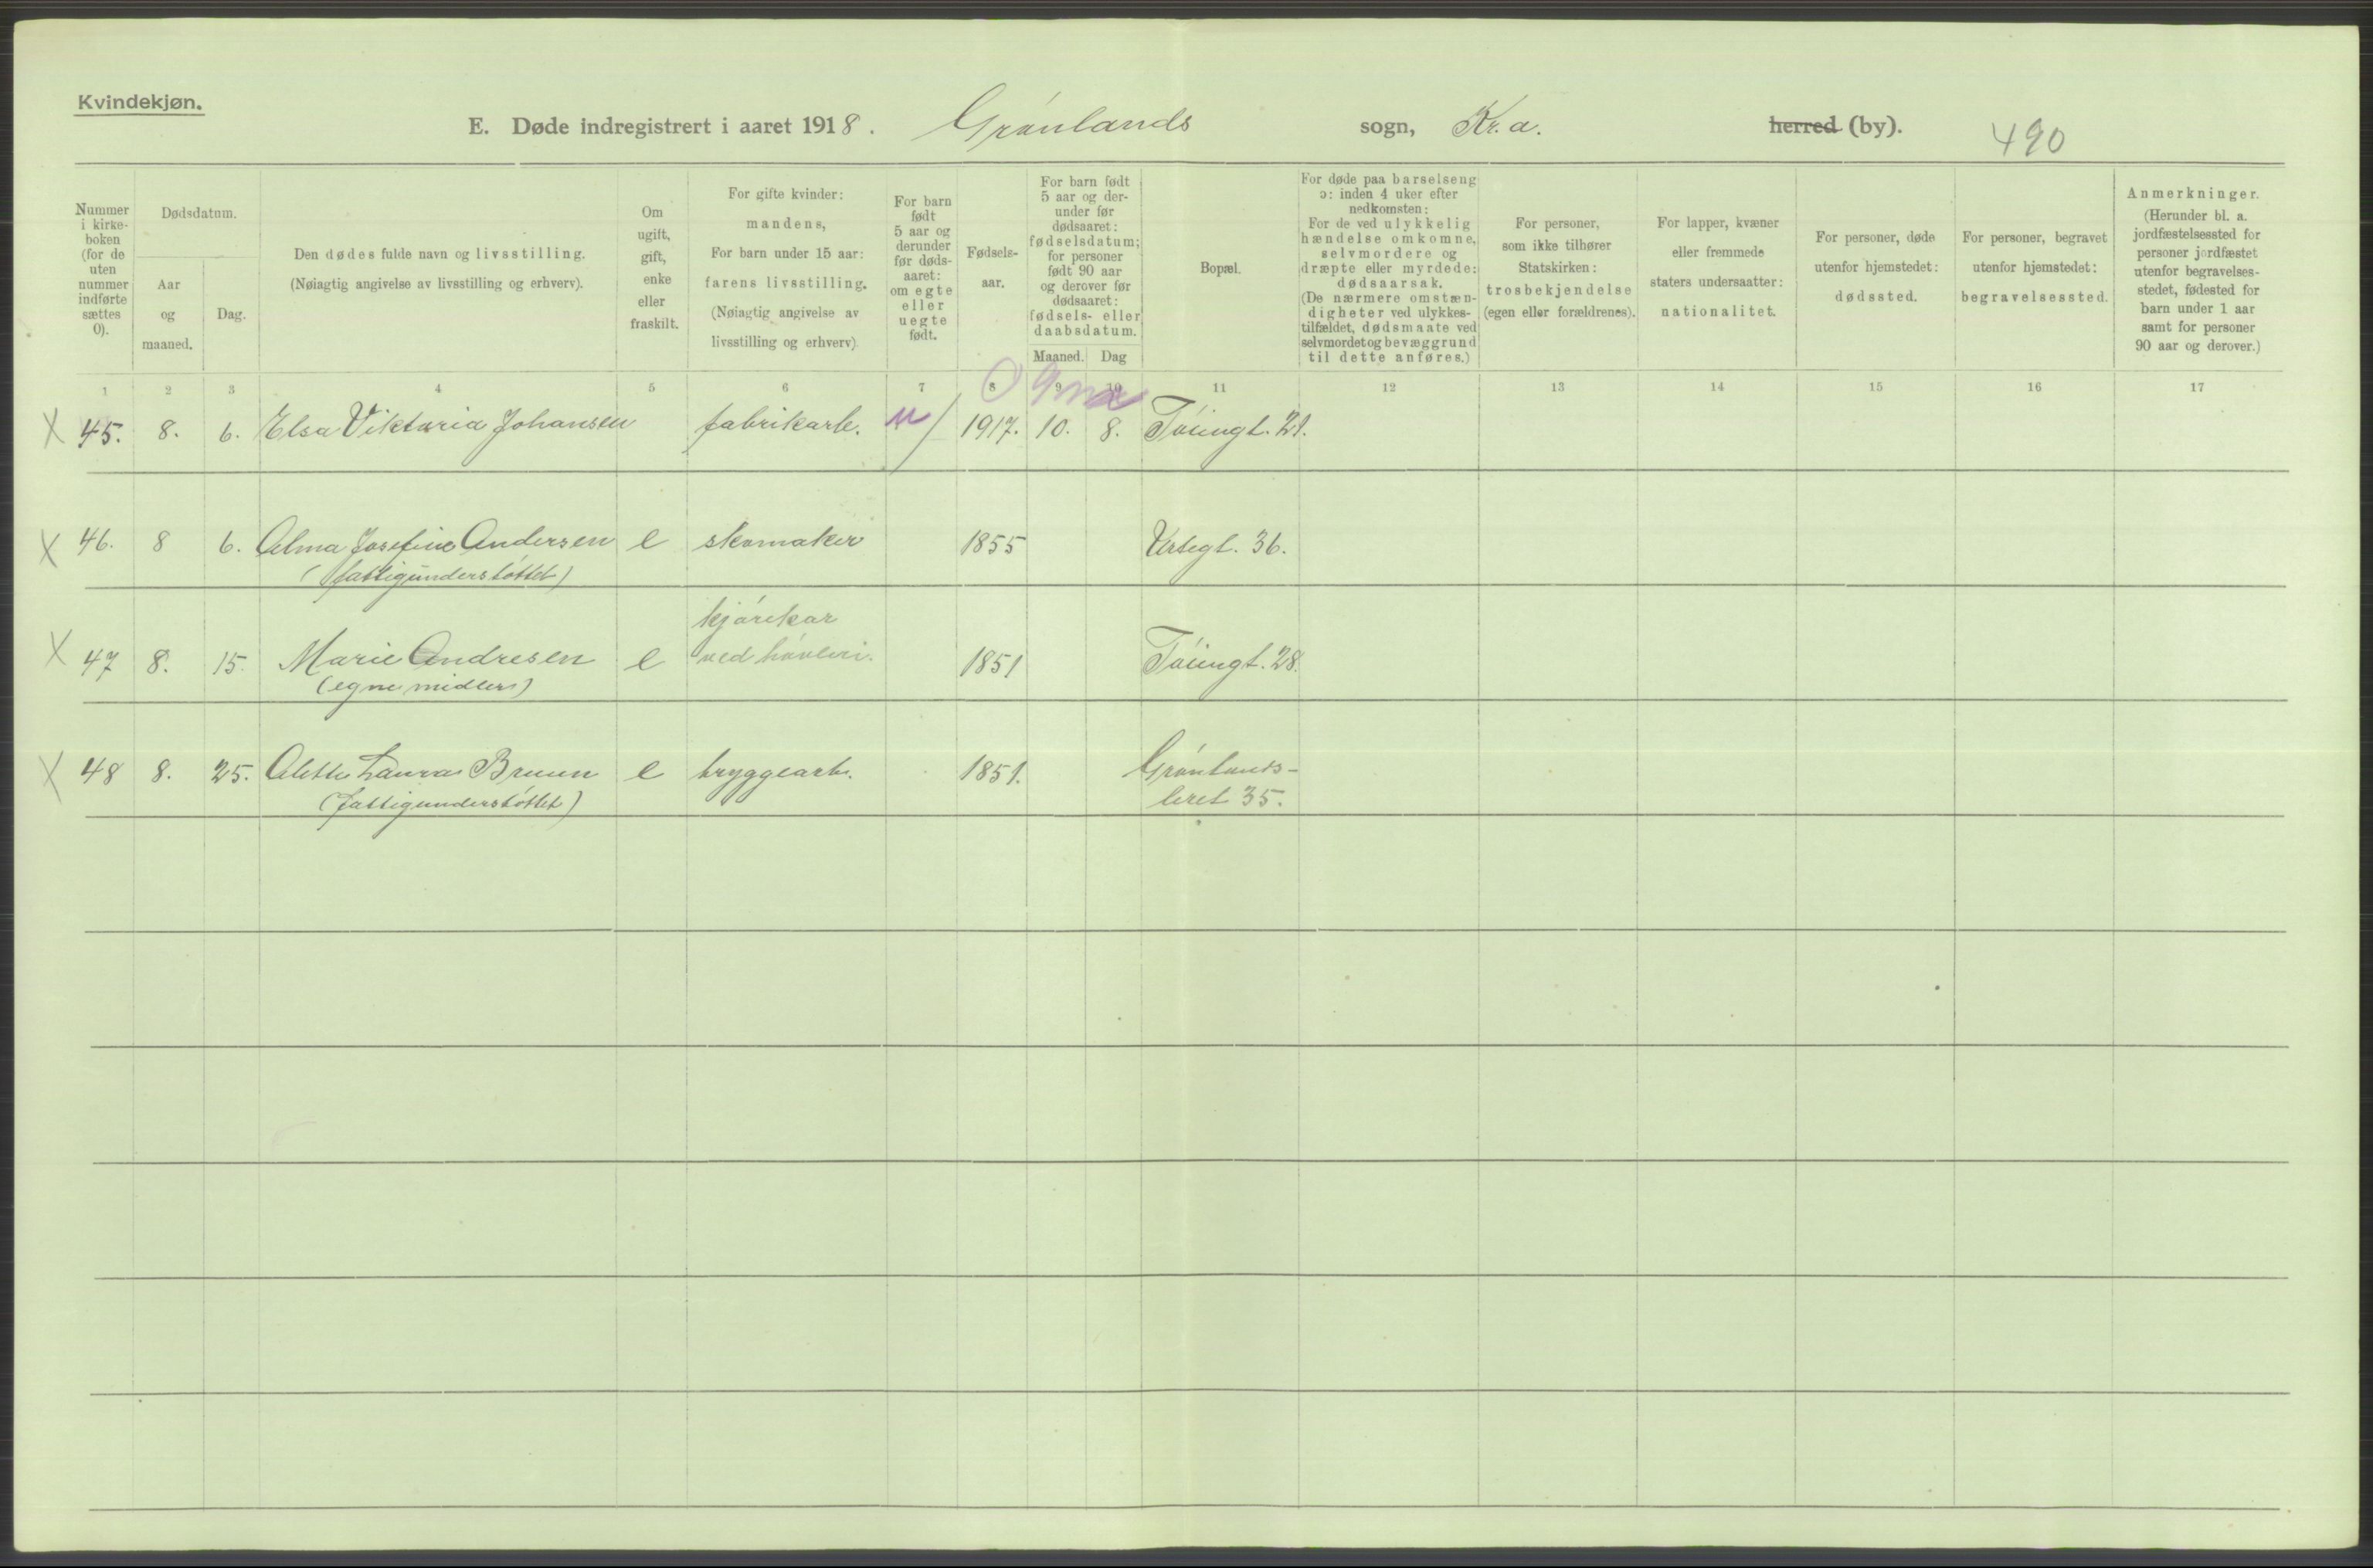 Kvindekjøn.
E. Døde indregistrert i aaret 1918. Grønlands sogn, Kr.a. herred (by). 490
Nummer
i kirke-
boken
(for de
uten
nummer
indførte
sættes
0).
Dødsdatum.
Aar
og
maaned.
Dag.
Den dødes fulde navn og livsstilling.
(Nøiagtig angivelse av livsstilling og erhverv).
Om
ugift,
gift,
enke
eller
fraskilt.
For gifte kvinder:
mandens,
For barn under 15 aar:
farens livsstilling.
(Nøiagtig angivelse av
livsstilling og erhverv)
For barn
født
5 aar og
derunder
før døds-
aaret:
om egte
eller
uegte
født.
Fødsels-
aar.
For barn født
5 aar og der-
under før
dødsaaret:
fødselsdatum;
for personer
født 90 aar
og derover før
dødsaaret:
fødsels- eller
daabsdatum.
Maaned. Dag
Bopæl.
For døde paa barselseng
ɔ: inden 4 uker efter
nedkomsten:
For de ved ulykkelig
hændelse omkomne,
selvmordere og
dræpte eller myrdede:
dødsaarsak.
(De nærmere omstæn-
digheter ved ulykkes-
tilfældet, dødsmaate ved
selvmordet og bevæggrund
til dette anføres.)
For personer,
som ikke tilhører
Statskirken:
trosbekjendelse
(egen eller forældrenes).
For lapper, kvæner
eller fremmede
staters undersaatter:
nationalitet.
For personer, døde
utenfor hjemstedet:
dødssted.
For personer, begravet
utenfor hjemstedet:
begravelsessted.
Anmerkninger.
(Herunder bl. a.
jordfæstelsessted for
personer jordfæstet
utenfor begravelses-
stedet, fødested for
barn under 1 aar
samt for personer
90 aar og derover.)
1 2 3 4 5 6 7 8 9 10 11 12 13 14 15 16 17
0 9 ma
X 45. 8. 6. Elsa Viktoria Johansen fabrikarb. u/ 1917. 10. 8. Tøiengt. 21.
X 46. 8 6. Alma Josefine Andersen e skomaker 1855 Urtegt. 36.
(fattigunderstøttet)
kjørekar
X 47 8. 15. Marie Andresen e ved høvleri. 1851 Tøiengt. 28.
(egne midler)
X 48 8. 25. Alette Laura Bruun e bryggearb. 1851. Grønlands-
(fattigunderstøttet) leret 35.